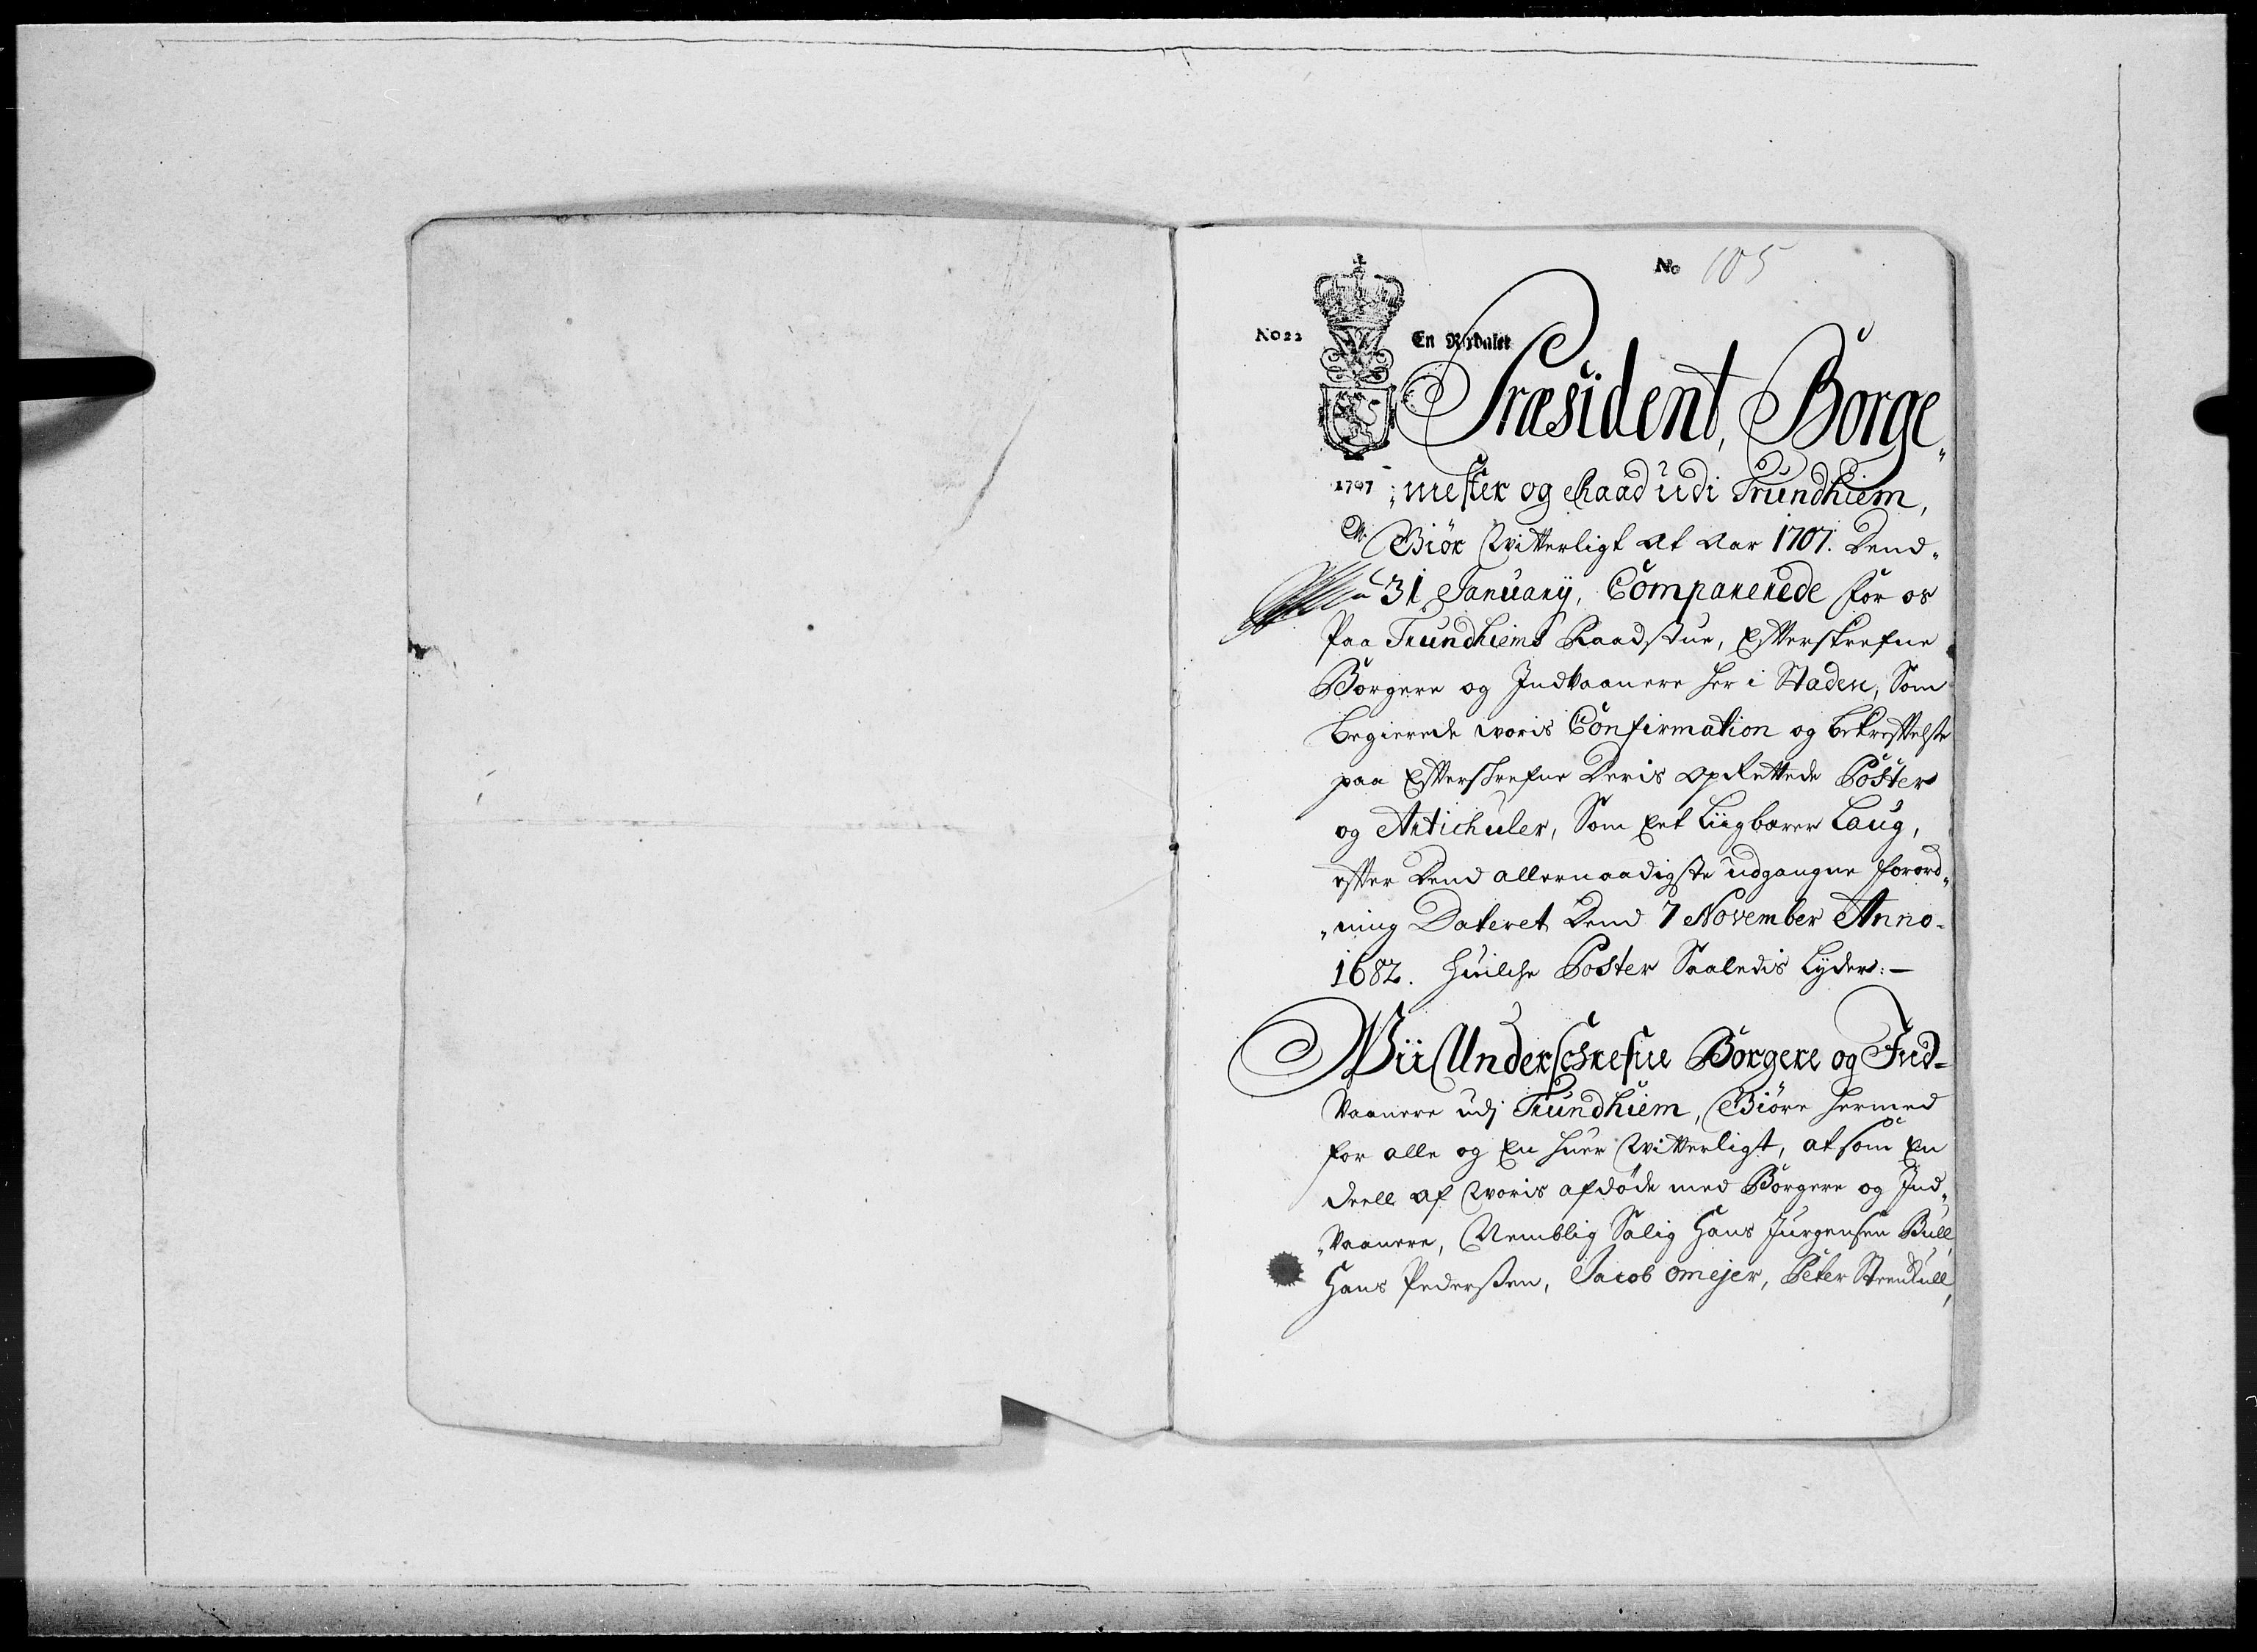 No 105
No 22
En Rixdaler
Præsident, Borge„
1707
„mester og Raad udi Trundhiem,
Giör Witterligt at Aar 1707. Dend„
31 January, Comparerede for os
Paa Trundhiems Raadstue, Efterskrefne
Borgere og Indvaanere her i Staden, Som
Begierede woris Confirmation og bekreftelse
paa Efterskrefne Deris opRettede Poster
og Artichuler, Som Eet Liigbærer Laug,
efter Dend allernaadigste udgangne forord„
„ning Dateret Dend 7 November Anno
1682. Huilche Poster Saaledis Lyder:—
Wii Underschrefne Borgere og Ind-
Vaanere udj Trundhiem, Giöre hermed
for alle og En huer Witterligt, at som En
Deell af Woris afdöde med Borgere og Ind„
„Vaanere, Nemblig Salig Hans Jurgensen Bull,
Hans Pedersen, Jacob omejer, Peter Steenkull,